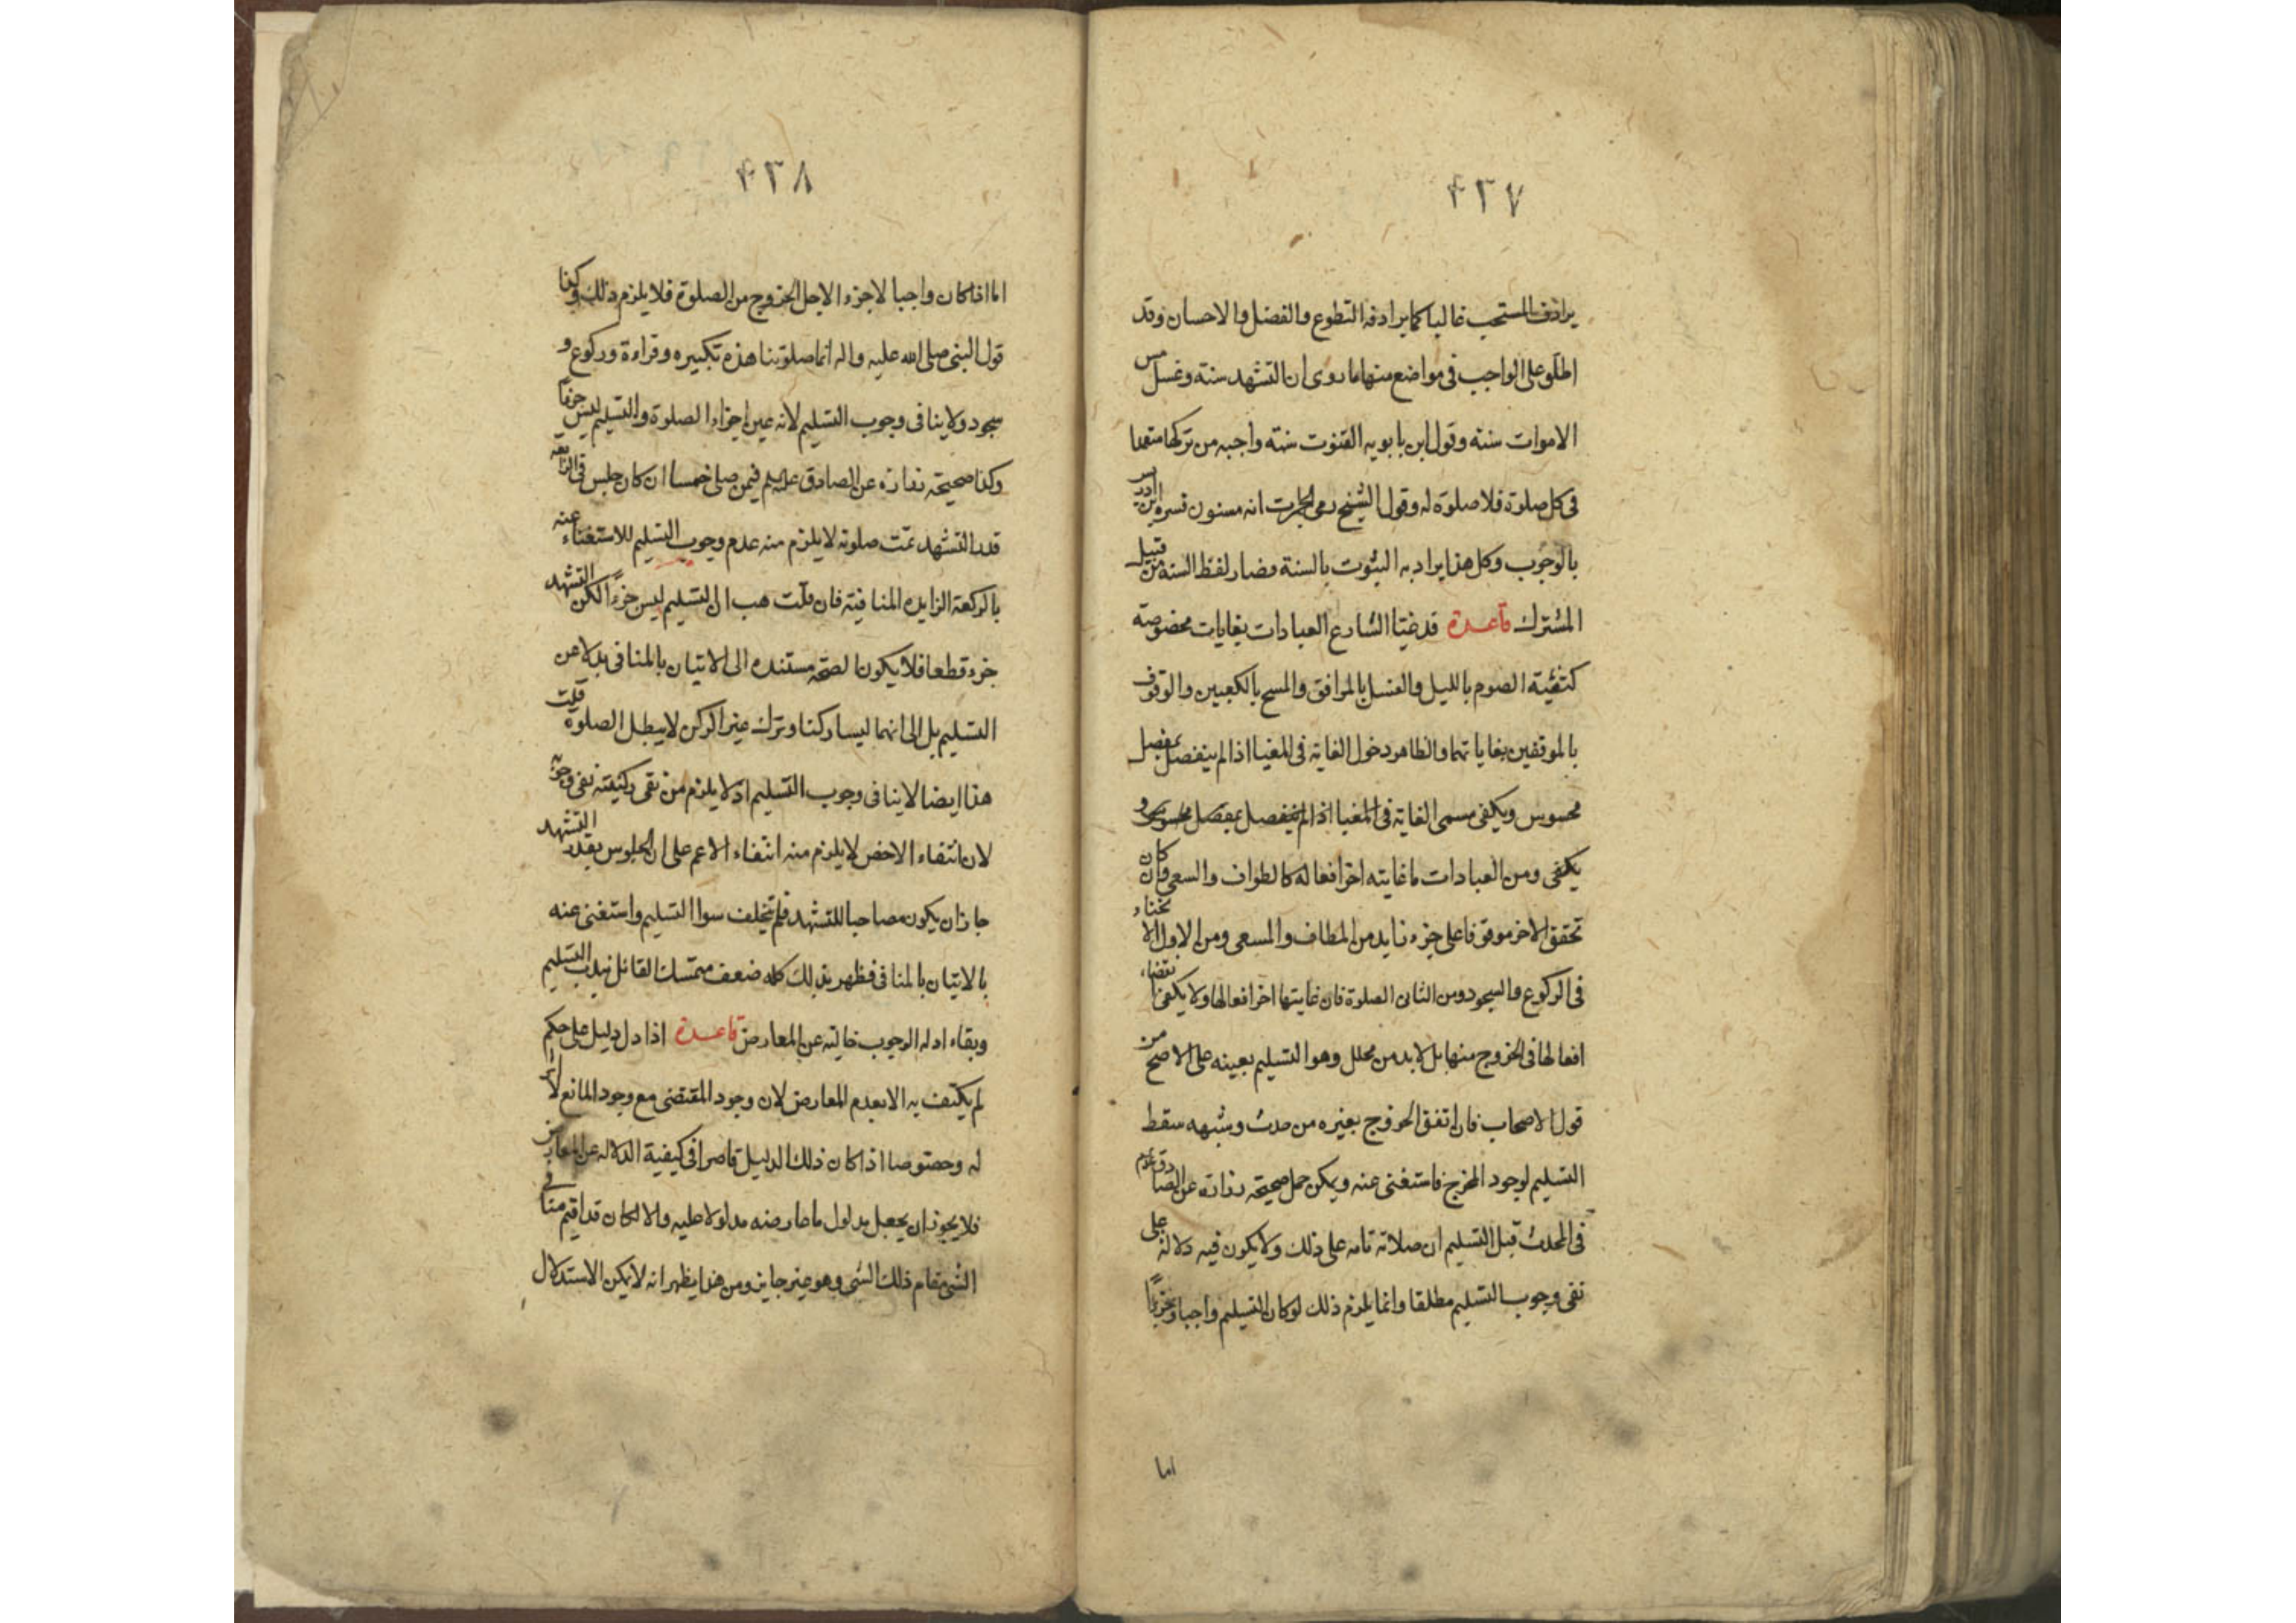 ۴۳۷
يرادف المستحب غالبا كما يرادفه التطوع والفضل والاحسان وقد
اطلق على الواجب فى مواضع منها ما روى ان التشهد سنته وغسل مس
الاموات سنته وقول ابن بابويه القنوت سنته واجبه من تركها متعمدا
فى كل صلوة فلا صلوة له وقول الشيخ رمى الجمرات انه مسنون فسره ابن ادريس
بالوجوب وكل هذا يراد به الثبوت بالسنة فصار لفظ السنه من قبيل
المشترك قاعدة قد غيا الشارع العبادات بغايات مخصوصة
كتغيية الصوم بالليل والغسل بالمرافق والمسح بالكعبين والوقوف
بالموقفين بغاياتهما والظاهر دخول الغاية فى المغيا اذا لم ينفصل بمفصل
محسوس ويكفى مسمى الغاية فى المغيا اذا لم ينفصل بمفصل محسوس و
يكفى ومن العبادات ما غايته اخر افعاله كالطواف والسعى وان كان
تحقق الاخر موقوفا على جزء زايد من المطاف والمسعى ومن الاول الانحناء
فى الركوع والسجود ومن الثانى الصلوة فان غايتها اخر افعالها ولا يكفى انقضاء
افعالها فى الخروج منها بل لابد من محلل وهو التسليم بعينه على الاصح من
قول الاصحاب فان اتفق الخروج بغيره من حدث وشبهه سقط
التسليم لوجود المخرج فاستغنى عنه ويمكن حمل صحيحة زرارة عن الصادق علم
فى المحدث قبل التسليم ان صلاته تامه على ذلك ولا يكون فيه دلالة على
نفى وجوب التسليم مطلقا وانما يلزم ذلك لوكان التسليم واجبا وجزءا
اما
۴۳۸
اما اذا كان واجبا لاجزء الاجل الخروج من الصلوة فلا يلزم ذلك وكذا
قول النبى صلى الله عليه واله انما صلوتنا هذه تكبيره وقراءة وركوع و
سجود ولا ينافى وجوب التسليم لانه عين اجزاء الصلوة والتسليم ليس جزءا
وكذا صحيحة زرارة عن الصادق عليه السلم فيمن صلى خمسا ان كان جلس فى الرابعة
قدر التشهد تمت صلوته لا يلزم منه عدم وجوب التسليم للاستغناء عنه
بالركعة الزايده المنافية فان قلت هب ان التسليم ليس جزءا لكن التشهد
جزء قطعا فلا يكون الصحة مستنده الى الاتيان بالمنافى بدلا عن
التسليم بل الى انهما ليسا ركنا وترك غير الركن لا يبطل الصلوة قلت
هذا ايضا لا ينافى وجوب التسليم اذ لا يلزم من نفى ركنيته نفى وجوبه
لان انتفاء الاخص لا يلزم منه انتفاء الاعم على ان الجلوس بقدر التشهد
جاز ان يكون مصاحبا للتشهد فلم يتخلف سوا التسليم واستغنى عنه
بالاتيان بالمنافى فظهر بذلك كله ضعف متمسك القائل بندب التسليم
وبقاء ادله الوجوب خالية عن المعارض قاعدة اذا دل دليل على حكم
لم يكتف به الا بعدم المعارض لان وجود المقتضى مع وجود المانع لا اثر
له وخصوصا اذا كان ذلك الدليل قاصرا فى كيفية الدلاله عن المعارض
فلا يجوز ان يجعل مدلول ما عارضه مدلولا عليه والا لكان قد اقيم منافى
الشى مقام ذلك الشى وهو غير جايز ومن هذا يظهر انه لا يمكن الاستدلال